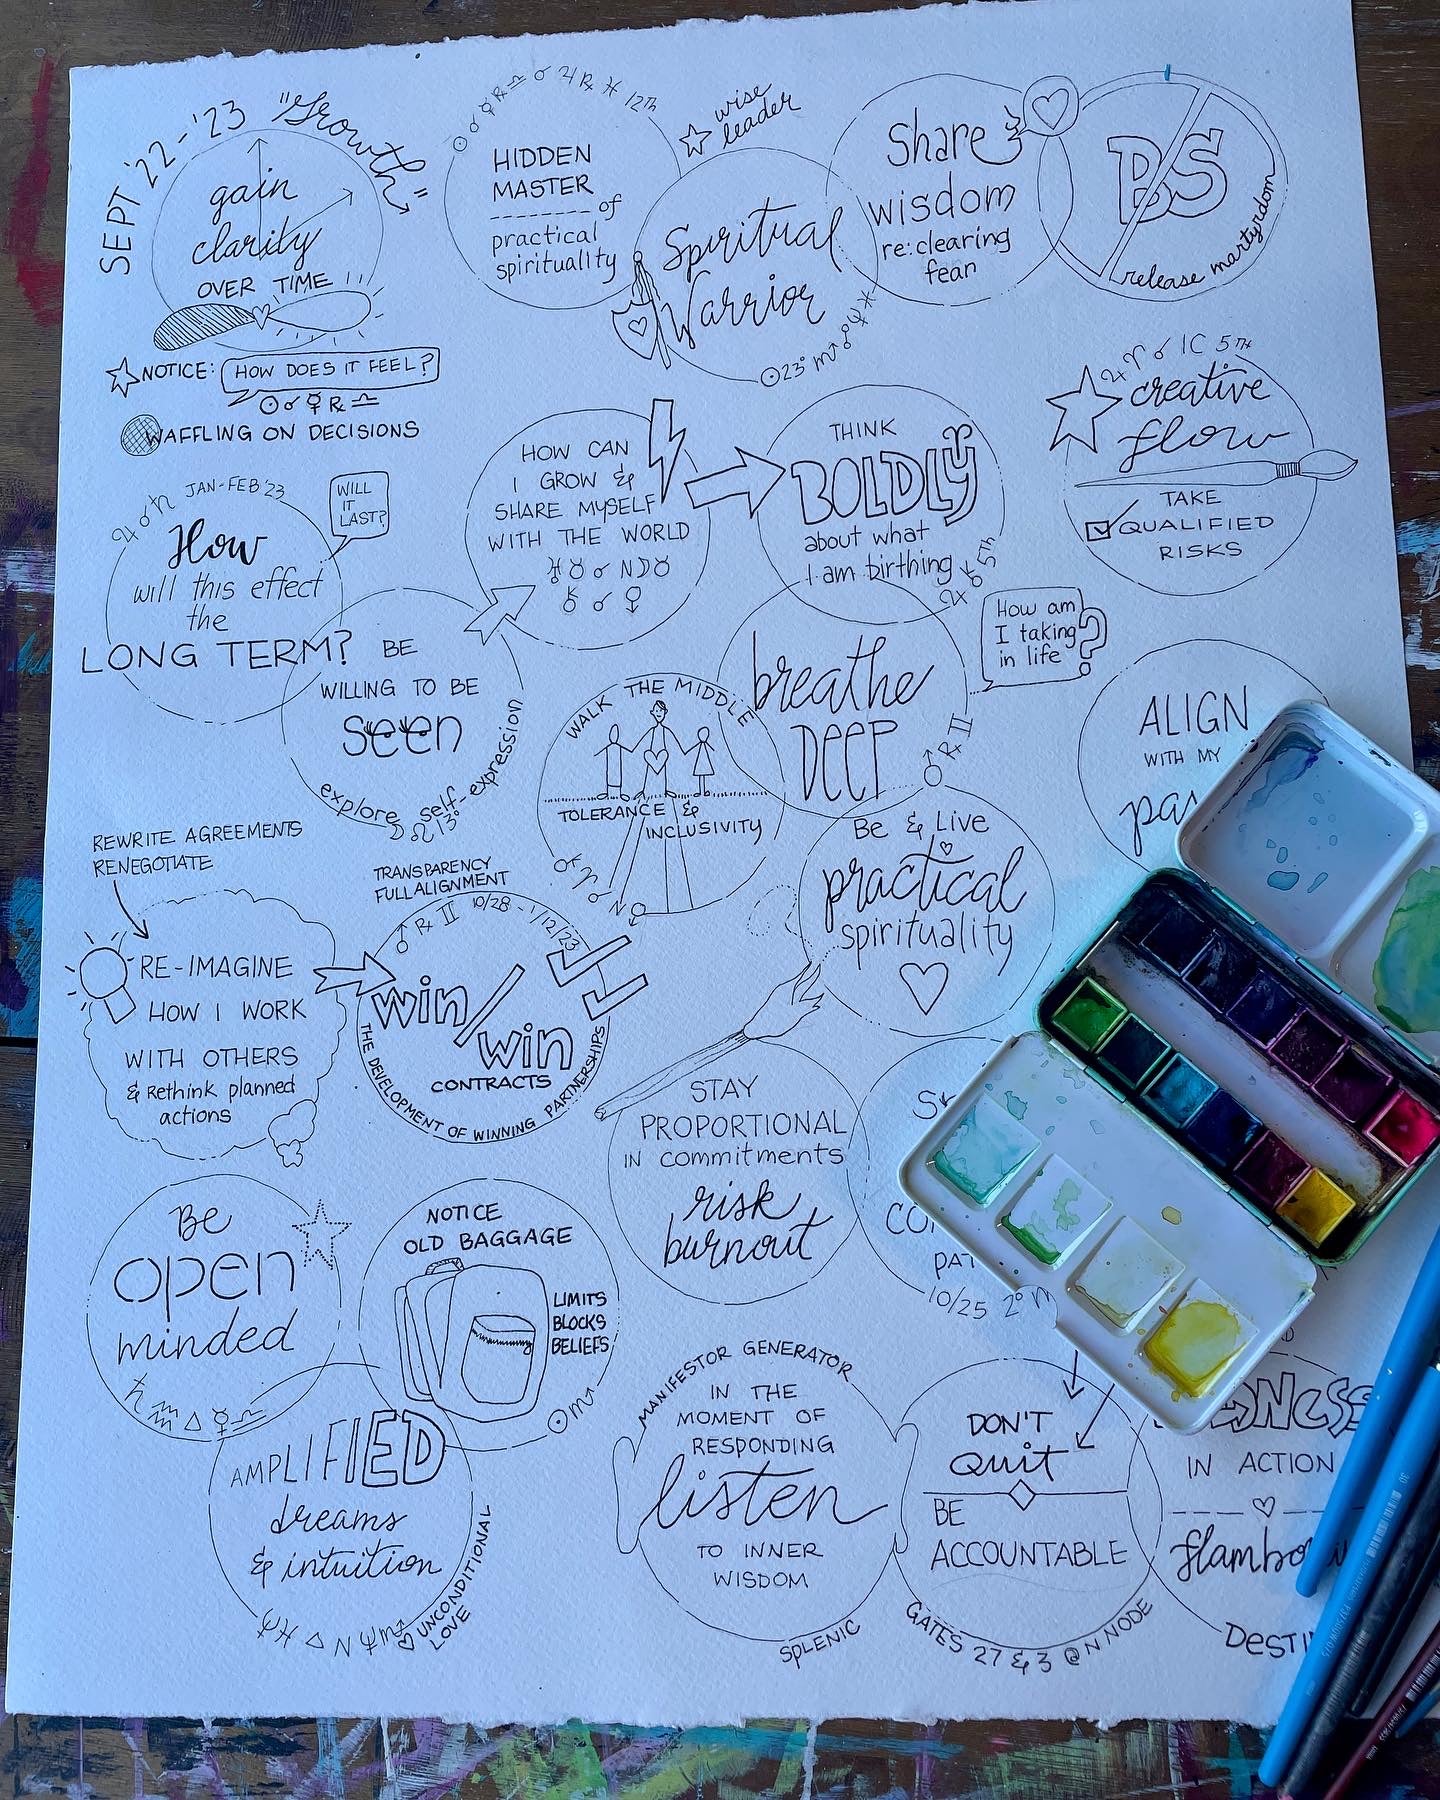 SEPT '22-'23 "Growth"
gain
clarity
OVER TIME !!
NOTICE: HOW DOES IT FEEL?
☉ ☌ ☿ ℞ ♎
WAFFLING ON DECISIONS
☉ ☌ ☿ ℞ ♎ ☍ ♃ ℞ ♓ 12TH
HIDDEN
MASTER
of
practical
spirituality
wise
leader
Spiritual
Warrior
☉ 23° ♏
Share
wisdom
re: clearing
fear
BS
release martyrdom
♃ ♈ ☌ IC 5TH
creative
flow
TAKE
QUALIFIED
RISKS
JAN-FEB 23
WILL
IT
LAST?
How
will this effect
the
LONG TERM?
BE
WILLING TO BE
seen
explore self-expression
☽ ♌ 13°
HOW CAN
I GROW &
SHARE MYSELF
WITH THE WORLD
♅ ♉ ☌ N ☽ ♉
⚷ ☌ ♀
THINK
BOLDLY
about what
I am birthing
5th
How am
I taking
in life
?
breathe
DEEP
♂ ℞ ♊
WALK THE MIDDLE
TOLERANCE &
INCLUSIVITY
ALIGN
WITH MY
Be & Live
practical
spirituality
REWRITE AGREEMENTS
RENEGOTIATE
RE-IMAGINE
HOW I WORK
WITH OTHERS
& Rethink planned
actions
TRANSPARENCY
FULL ALIGNMENT
♂ ℞ ♊ 10/28 - 1/12/23
win/
win
CONTRACTS
THE DEVELOPMENT OF WINNING PARTNERSHIPS
STAY
PROPORTIONAL
IN commitments
risk
burnout
10/25 2° ♏
Be
open
minded
♄ ♒ △ ☿ ♎
NOTICE
OLD BAGGAGE
LIMITS
BLOCKS
BELIEFS
☉ ♏
AMPLIFIED
dreams
& intuition
♆ ♓ △ N ♆ ♏
UNCONDITIONAL
LOVE
MANIFESTOR GENERATOR
IN THE
MOMENT OF
RESPONDING
listen
TO INNER
WISDOM
SPLENIC
DON'T
Quit
BE
ACCOUNTABLE
GATES 27 & 3 @ N NODE
IN ACTION